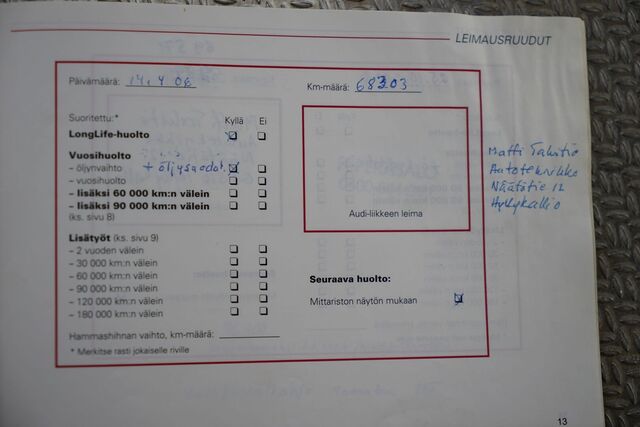 LEIMAUSRUUDUT
Päivämäärä: 14.4 06
Km-määrä: 68303
Suoritettu:*
Kyllä Ei
LongLife-huolto
Vuosihuolto
– öljynvaihto + öljysuodat.
– vuosihuolto
– lisäksi 60 000 km:n välein
– lisäksi 90 000 km:n välein
(ks. sivu 8)
Audi-liikkeen leima
Matti
Autoteknikko
12
Hyllykallio
Lisätyöt (ks. sivu 9)
– 2 vuoden välein
– 30 000 km:n välein
– 60 000 km:n välein
– 90 000 km:n välein
– 120 000 km:n välein
– 180 000 km:n välein
Seuraava huolto:
Mittariston näytön mukaan
Hammashihnan vaihto, km-määrä:
* Merkitse rasti jokaiselle riville
13